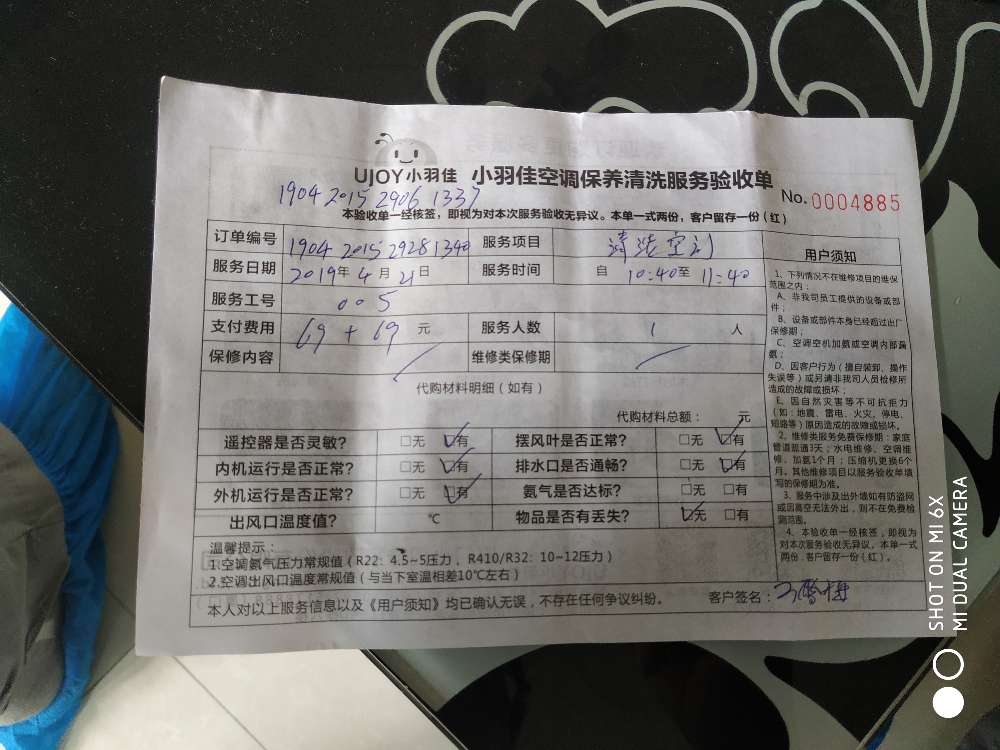 UJOY小羽佳 小羽佳空调保养清洗服务验收单
1904 2015 2906 1337
No. 0004885
本验收单一经核签，即视为对本次服务验收无异议。本单一式两份，客户留存一份（红）
订单编号 1904 2015 2928 1340 服务项目 清洗空调
服务日期 2019年 4月 21日 服务时间 自 10:40至 11:40
服务工号 005
支付费用 69 + 69 元 服务人数 1 人
保修内容 维修类保修期
代购材料明细（如有）
代购材料总额： 元
遥控器是否灵敏? □无 □有 摆风叶是否正常? □无 □有
内机运行是否正常? □无 □有 排水口是否通畅? □无 □有
外机运行是否正常? □无 □有 氨气是否达标? □无 □有
出风口温度值? ℃ 物品是否有丢失? □无 □有
温馨提示：
1.空调氨气压力常规值（R22：4.5~5压力，R410/R32：10~12压力）
2.空调出风口温度常规值（与当下室温相差10℃左右）
本人对以上服务信息以及《用户须知》均已确认无误，不存在任何争议纠纷。 客户签名：
用户须知
1、下列情况不在维修项目的维保
范围之内：
A、非我司员工提供的设备或部
件；
B、设备或部件本身已经超过出厂
保修期；
C、空调空机加氨或空调内部漏
氨；
D、因客户行为（擅自装卸、操作
失误等）或另请非我司人员检修所
造成的故障或损坏；
E、因自然灾害等不可抗拒力
（如：地震、雷电、火灾、停电、
短路等）原因造成的故障或损坏。
2、维修类服务免费保修期：家庭
管道疏通3天；水电维修、空调维
修、加氨1个月；压缩机更换6个
月。其他维修项目以服务验收单填
写的保修期为准。
3、服务中涉及出外墙如有防盗网
或因高空无法外出，则不在免费检
测范围。
4、本验收单一经核签，即视为
对本次服务验收无异议。本单一式
两份，客户留存一份（红）。
SHOT ON MI 6X
MI DUAL CAMERA